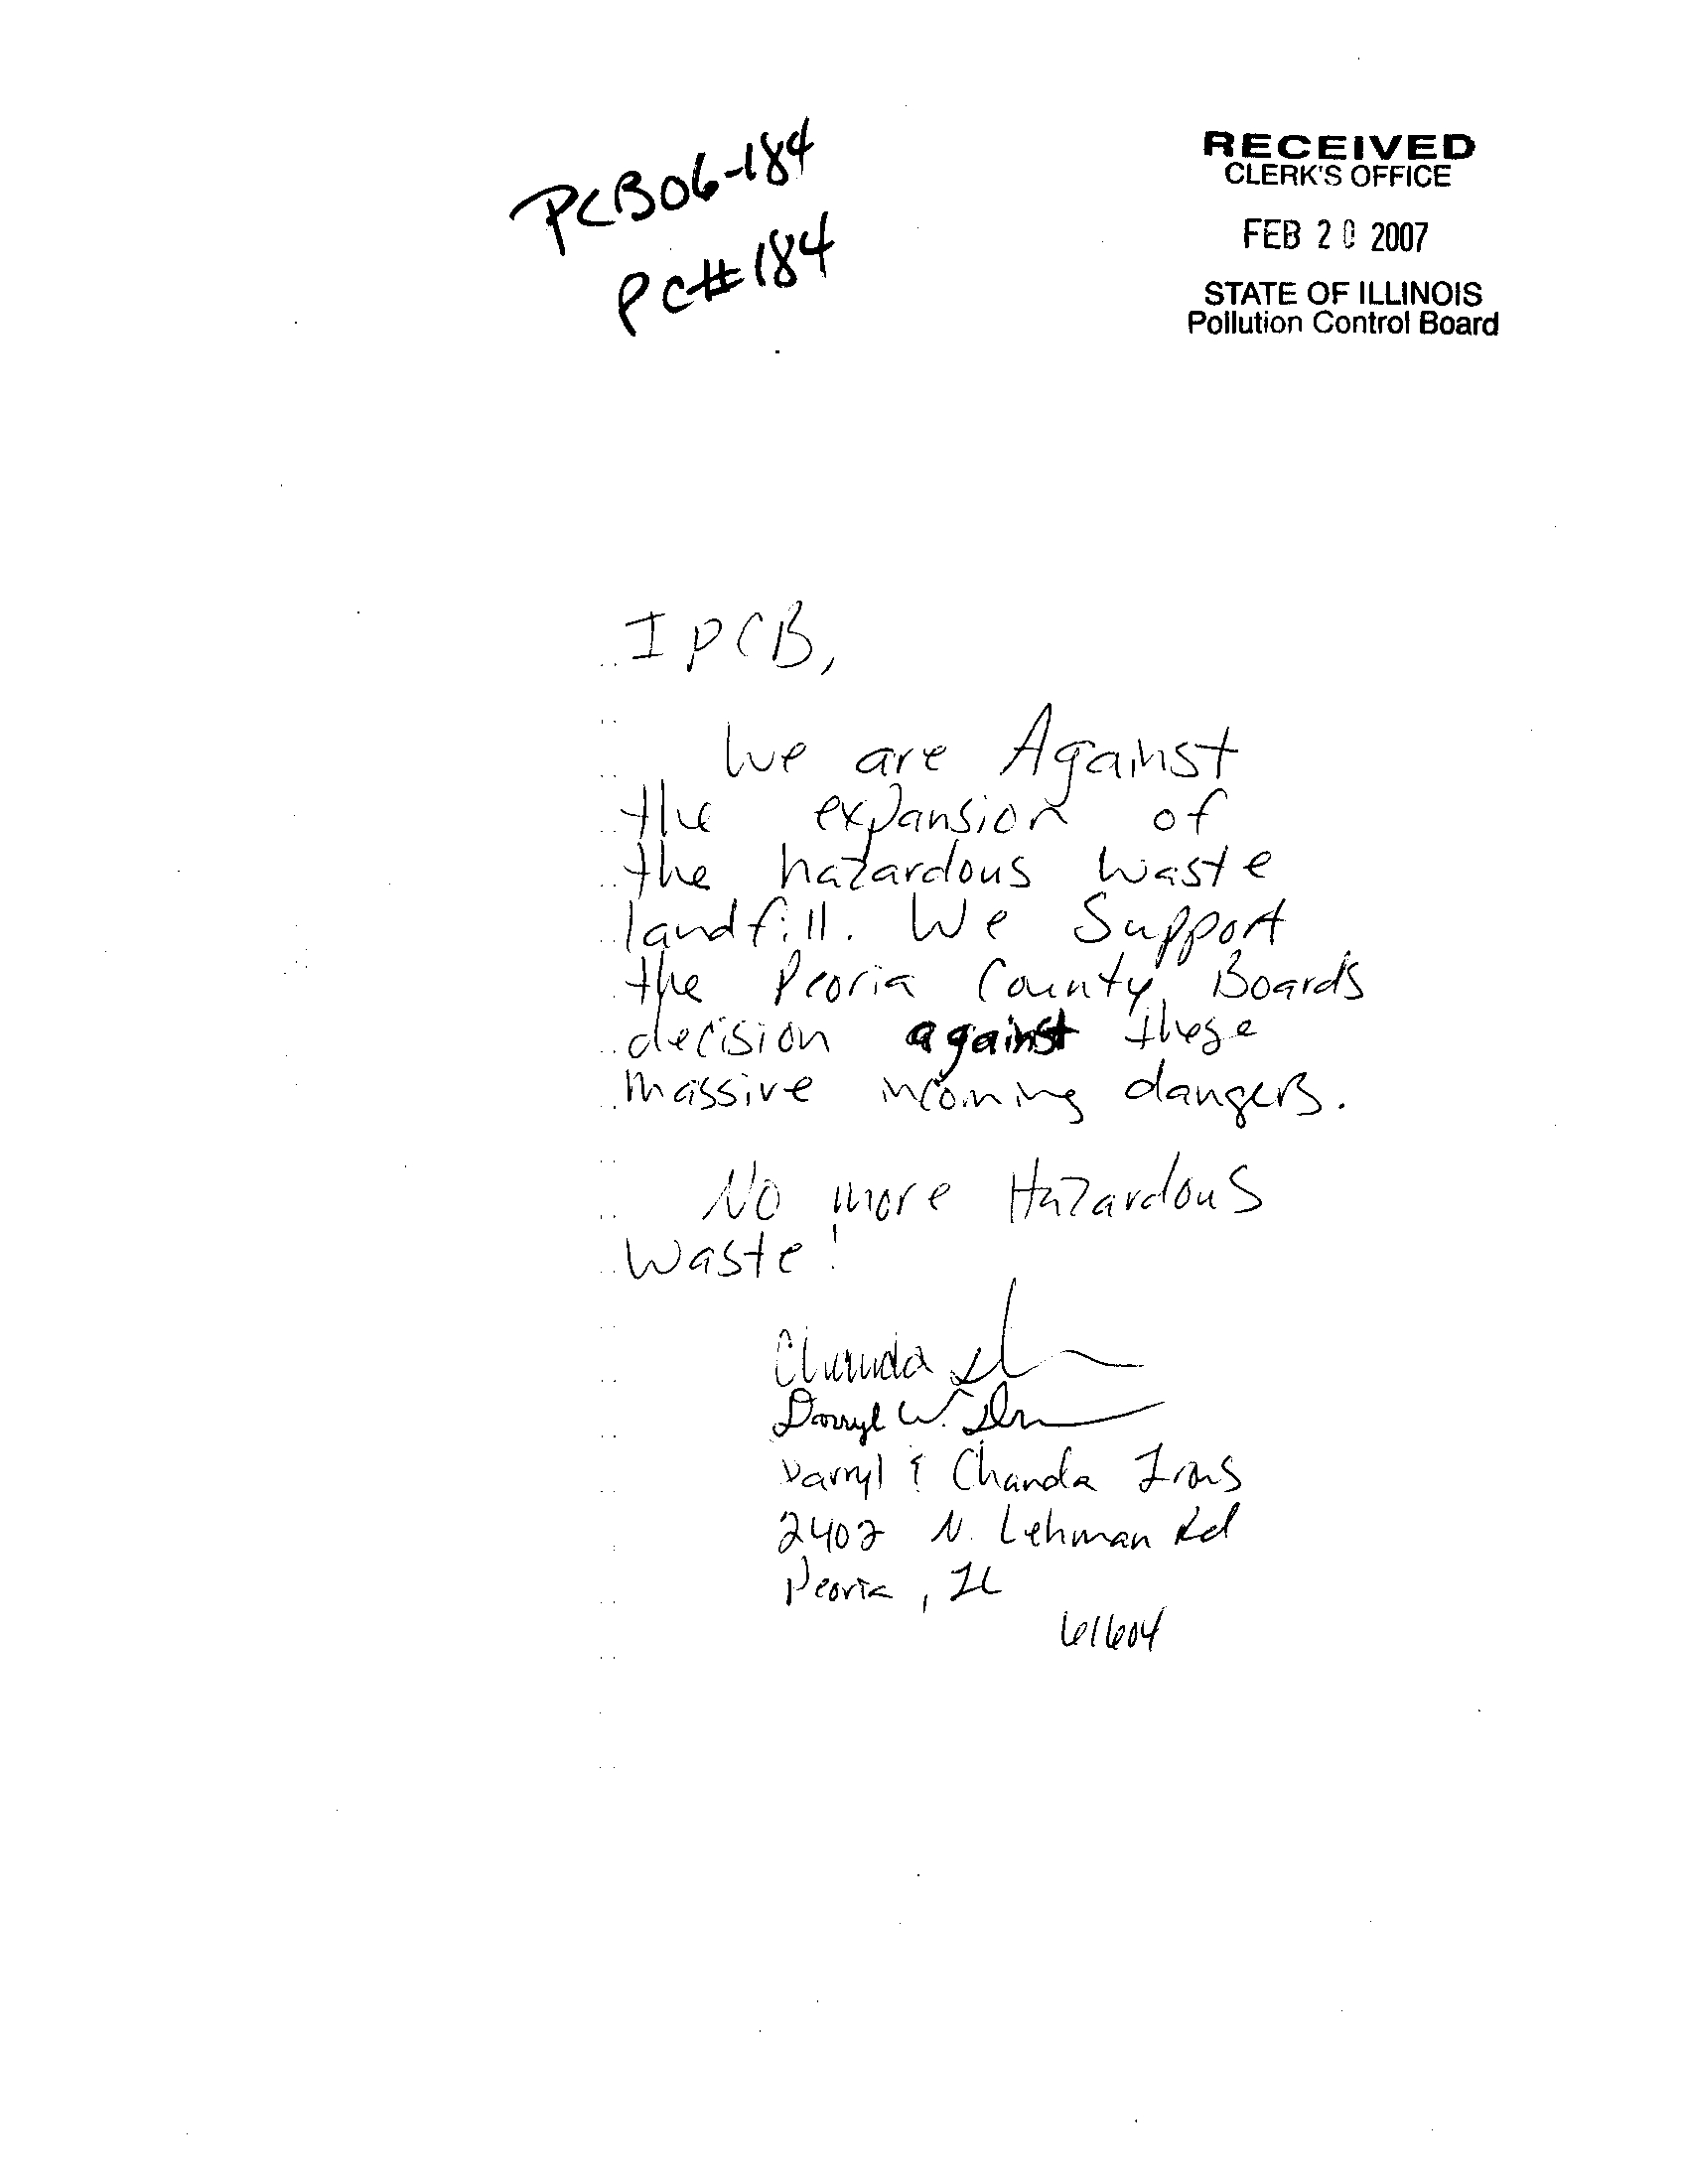 PCB06-184
PC#184
RECEIVED
CLERK'S OFFICE
FEB 20 2007
STATE OF ILLINOIS
Pollution Control Board
IPCB,
We are Against
the expansion of
the hazardous waste
landfill. We Support
the Peoria County Boards
decision against these
massive incoming dangers.
No more Hazardous
Waste!
Chanda
Darryl W.
Darryl & Chanda Irons
2402 N. Lehman Rd
Peoria, IL
61604